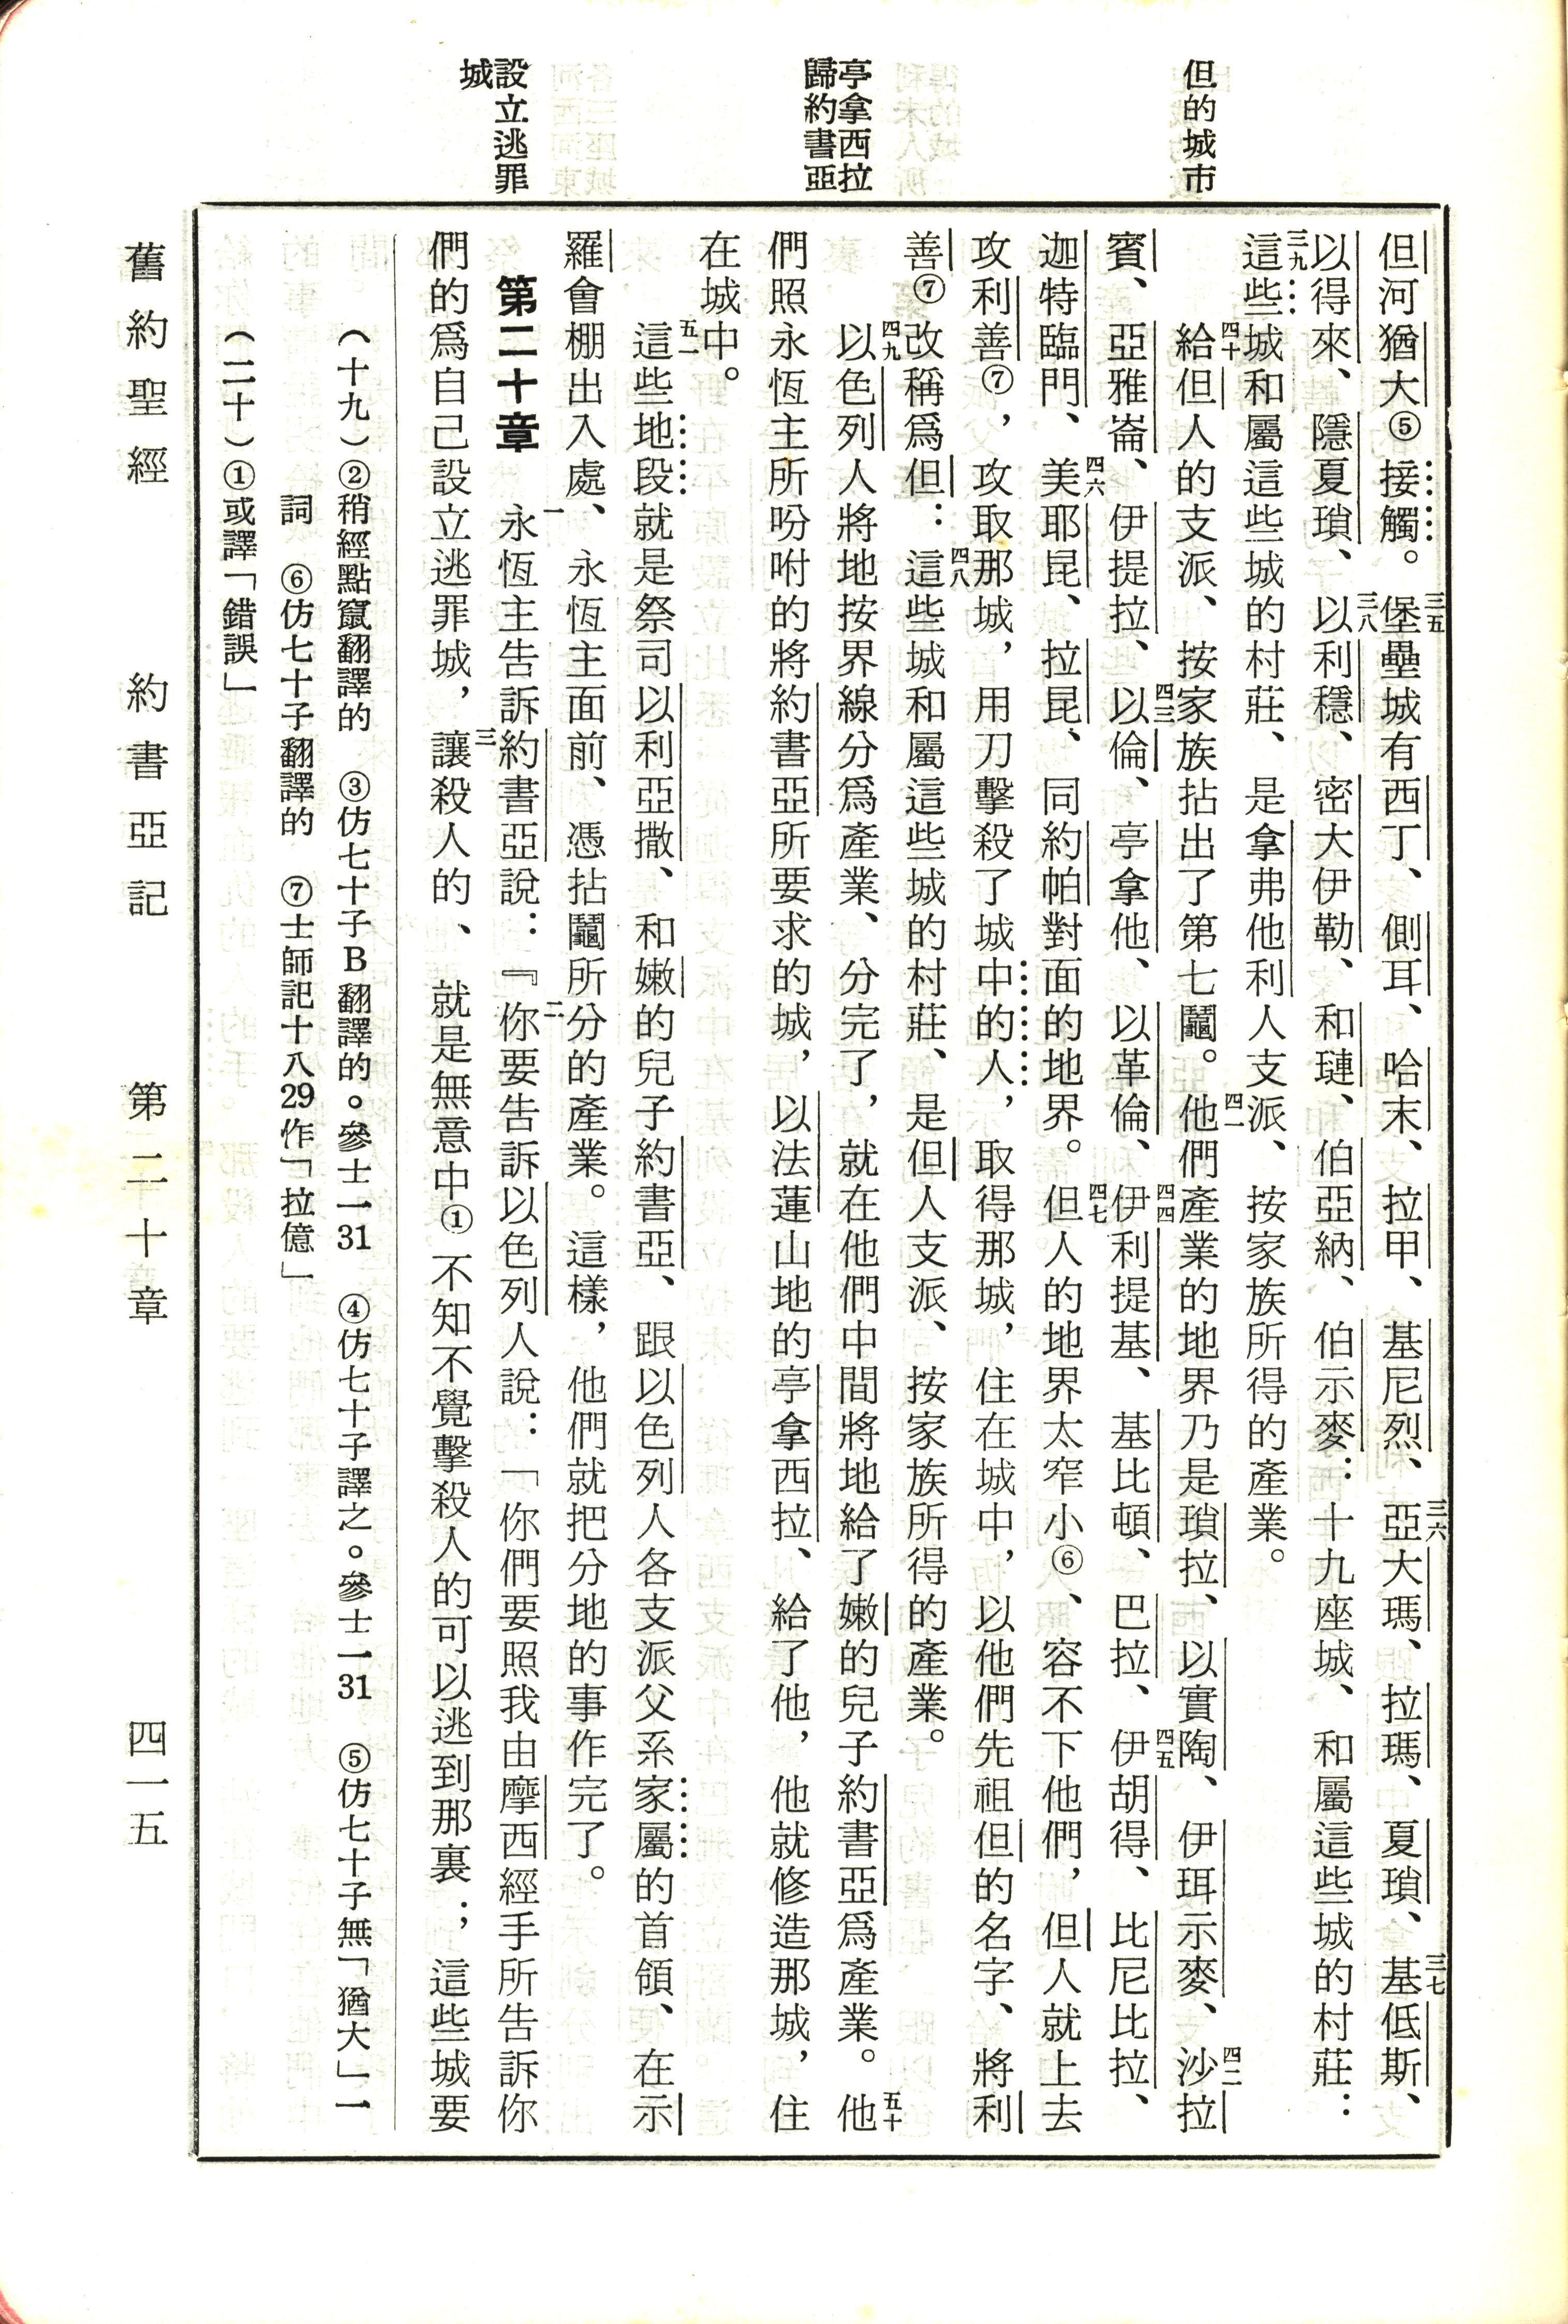 但的城市
亭拿西拉
歸約書亞
設立逃罪
城
但河猶大⑤接觸。三五堡壘城有西丁、側耳、哈末、拉甲、基尼烈、三六亞大瑪、拉瑪、夏瑣、三七基低斯、
以得來、隱夏瑣、三八以利穩、密大伊勒、和璉、伯亞納、伯示麥：十九座城、和屬這些城的村莊：
三九這些城和屬這些城的村莊、是拿弗他利人支派、按家族所得的產業。
四十給但人的支派、按家族拈出了第七鬮。四一他們產業的地界乃是瑣拉、以實陶、伊珥示麥、四二沙拉
賓、亞雅崙、伊提拉、四三以倫、亭拿他、以革倫、四四伊利提基、基比頓、巴拉、四五伊胡得、比尼比拉、
迦特臨門、四六美耶昆、拉昆、同約帕對面的地界。四七但人的地界太窄小⑥、容不下他們，但人就上去
攻利善⑦，攻取那城，用刀擊殺了城中的人，取得那城，住在城中，以他們先祖但的名字、將利
善⑦改稱爲但：四八這些城和屬這些城的村莊、是但人支派、按家族所得的產業。
四九以色列人將地按界線分爲產業、分完了，就在他們中間將地給了嫩的兒子約書亞爲產業。五十他
們照永恆主所吩咐的將約書亞所要求的城，以法蓮山地的亭拿西拉、給了他，他就修造那城，住
在城中。
五一這些地段就是祭司以利亞撒、和嫩的兒子約書亞、跟以色列人各支派父系家屬的首領、在示
羅會棚出入處、永恆主面前、憑拈鬮所分的產業。這樣，他們就把分地的事作完了。
第二十章　一永恆主告訴約書亞說：『二你要告訴以色列人說：「你們要照我由摩西經手所告訴你
們的爲自己設立逃罪城，三讓殺人的、就是無意中①不知不覺擊殺人的可以逃到那裏；這些城要
（十九）②稍經點竄翻譯的　③仿七十子B翻譯的。參士一31　④仿七十子譯之。參士一31　⑤仿七十子無「猶大」一
詞　⑥仿七十子翻譯的　⑦士師記十八29作「拉億」
（二十）①或譯「錯誤」
舊約聖經　約書亞記　第二十章　四一五